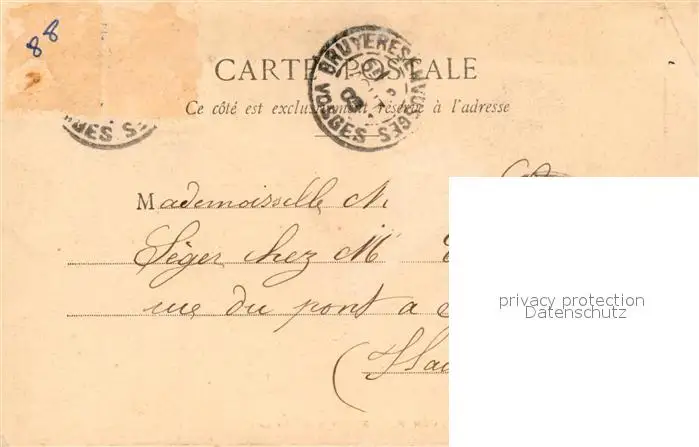 88
CARTE POSTALE
BRUYERES EN VOSGES VOSGES
GES
Ce côté est exclusivement réservé à l'adresse
Mademoiselle N.
Léger chez Mr
rue du pont a
privacy protection
Datenschutz